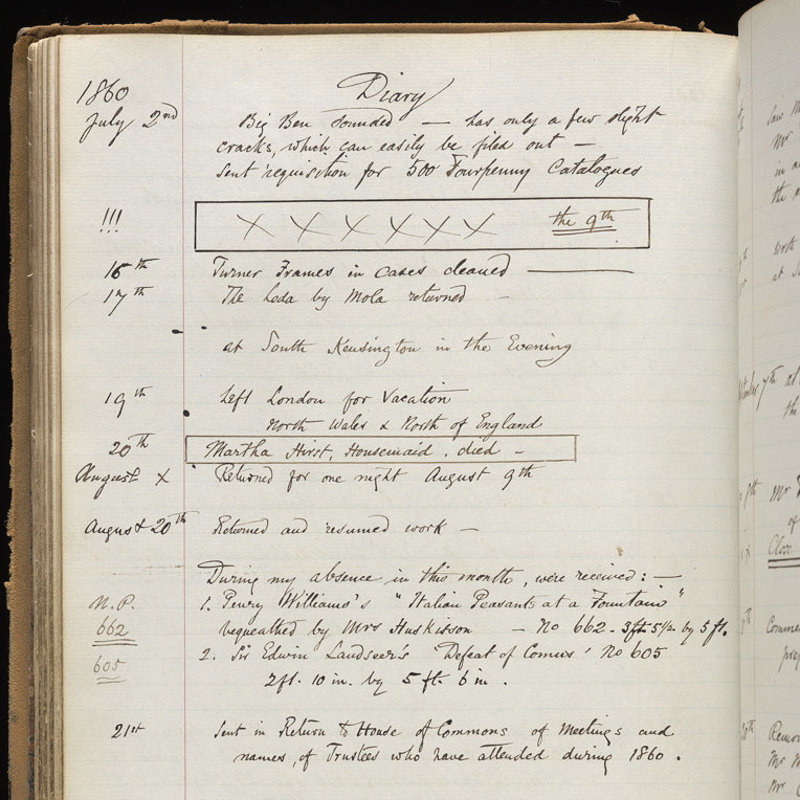 1860 Diary
July 2nd Big Ben sounded — has only a few slight
cracks, which can easily be filed out —
Sent requisition for 500 Fourpenny Catalogues
!!! X X X X X X the 9th
16th Turner Frames in cases cleaned —
17th The Leda by Mola returned —
at South Kensington in the Evening
19th Left London for Vacation
North Wales & North of England
20th Martha Hirst, Housemaid, died —
August X Returned for one night August 9th
August 20th Returned and resumed work —
During my absence in this month, were received: —
N.P. 1. Penry Williams's "Italian Peasants at a Fountain"
662 bequeathed by Mrs Huskisson — No 662 - 3ft 5½ by 5 ft.
605 2. Sir Edwin Landseer's Defeat of Comus' No 605
2ft. 10 in. by 5 ft. 6 in.
21st Sent in Return to House of Commons of Meetings and
names, of Trustees who have attended during 1860.